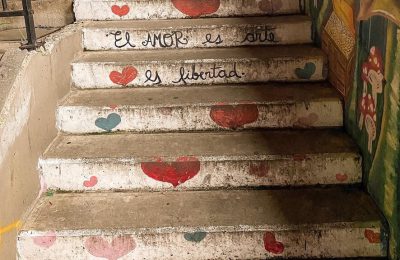 El AMOR es arte
es libertad.